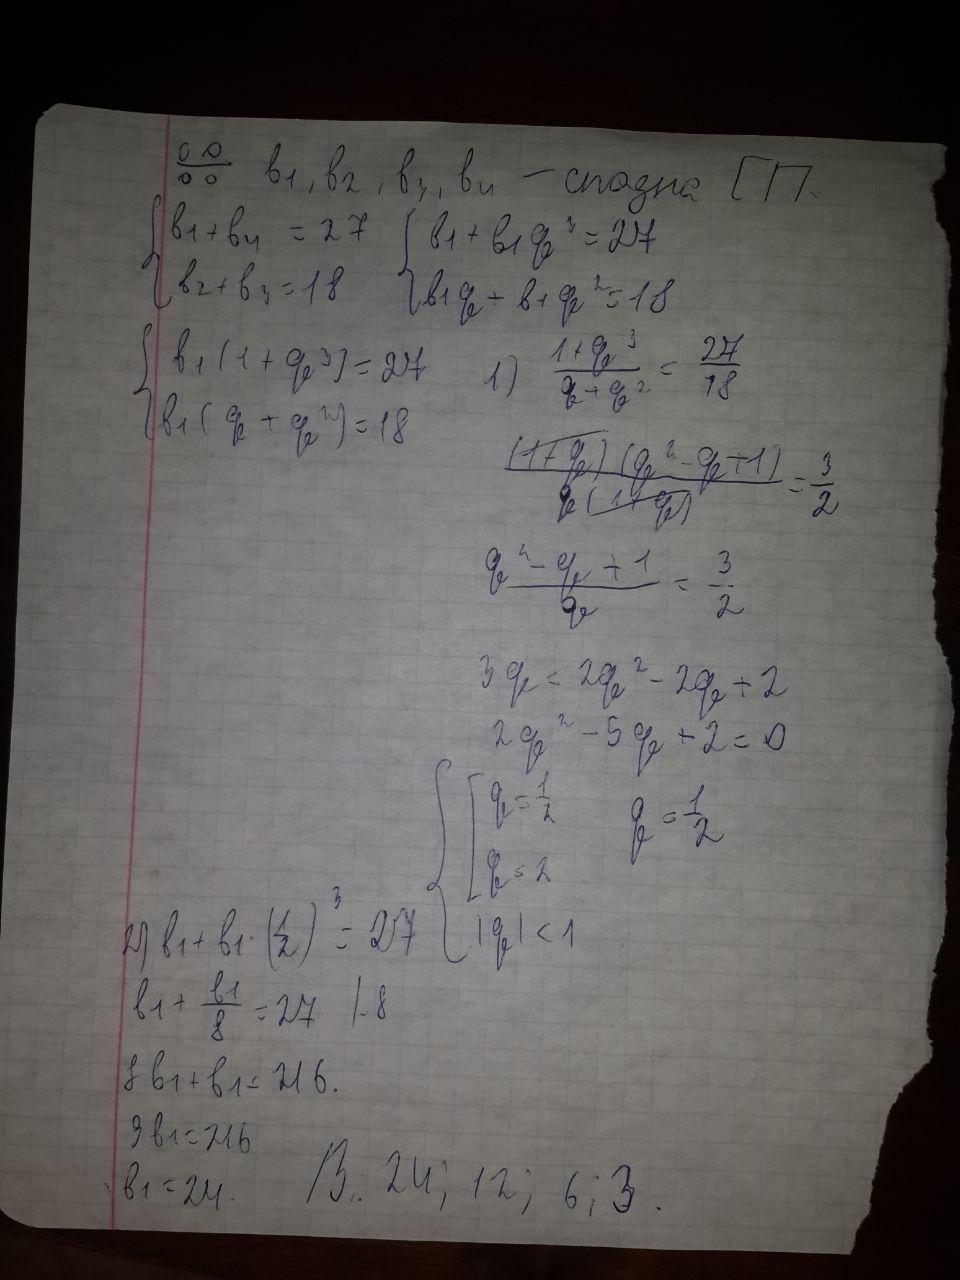 ∺ b₁, b₂, b₃, b₄ – спадна ГП.
{ b₁ + b₄ = 27 { b₁ + b₁q³ = 27
b₂ + b₃ = 18 b₁q + b₁q² = 18
{ b₁(1 + q³) = 27
b₁(q + q²) = 18
1) (1+q³)/(q+q²) = 27/18
(1+q)(q²-q+1)/q(1+q) = 3/2
(q²-q+1)/q = 3/2
3q = 2q² - 2q + 2
2q² - 5q + 2 = 0
{ [ q = 1/2 q = 1/2
q = 2
|q| < 1
2) b₁ + b₁·(1/2)³ = 27
b₁ + b₁/8 = 27 |·8
8b₁ + b₁ = 216.
9b₁ = 216
b₁ = 24.
В.: 24; 12; 6; 3.